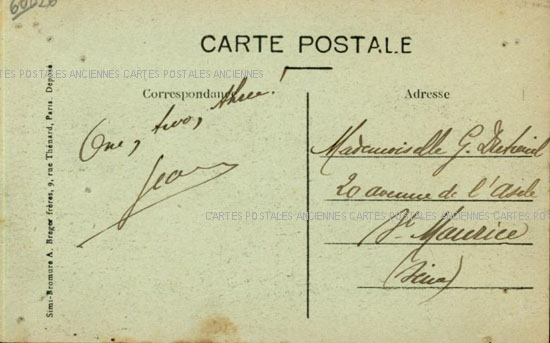 60626
CARTE POSTALE
CARTES POSTALES ANCIENNES CARTES POSTALES ANCIENNES
Correspondance
One, two, three!
Jean
Adresse
Mademoiselle G.
20 avenue de l'Asile
St Maurice
(Seine)
CARTES POSTALES ANCIENNES CARTES POSTALES ANCIENNES
Simi-Bromure A. Breger frères, 9, rue Thénard, Paris. Déposé